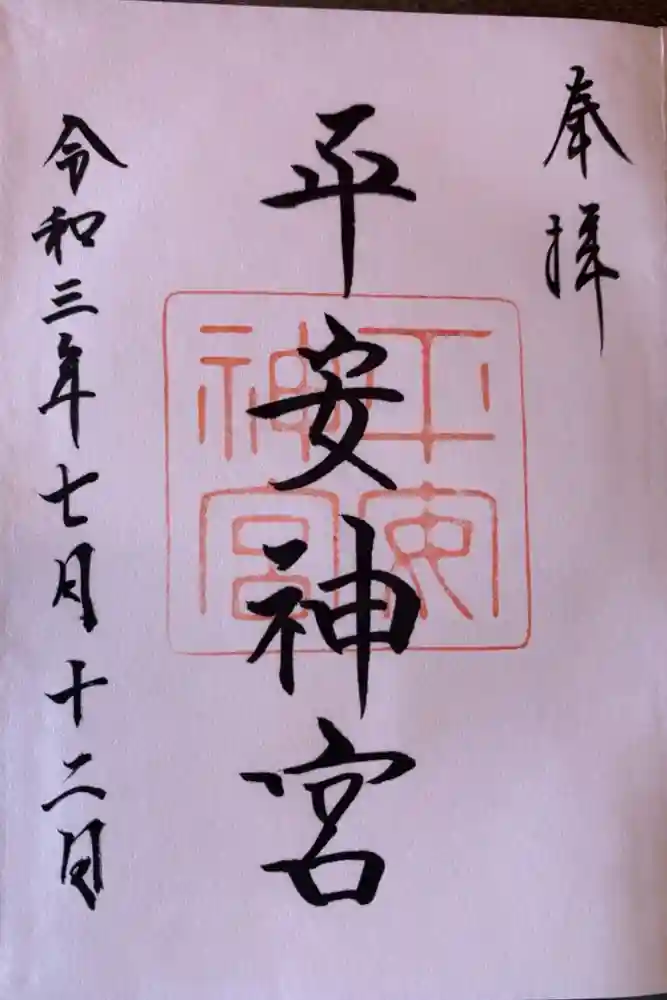 奉拝
平安神宮
平安神宮
令和三年七月十二日